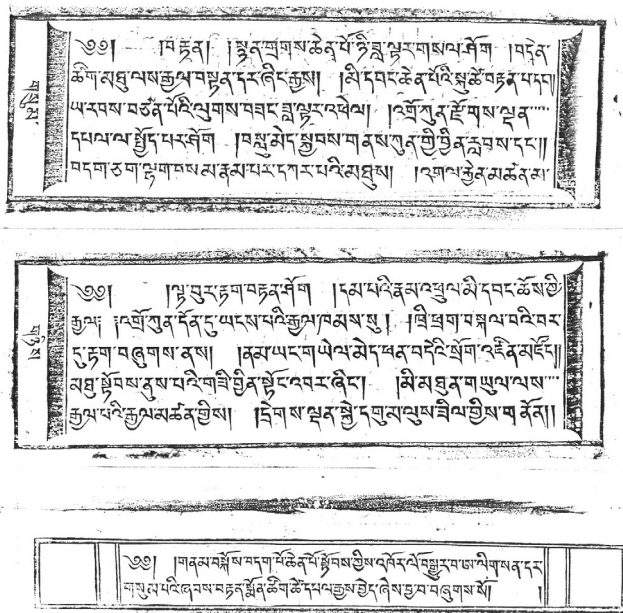 ༄༅། །བརྟན། །སྙན་གྲགས་ཆེན་པོ་ཉི་ཟླ་ལྟར་གསལ་ཤོག །བདེན་
ཚིག་མཐུ་ལས་རྒྱལ་བསྟན་དར་ཞིང་རྒྱས། །མི་དབང་ཆེན་པོའི་སྐུ་ཚེ་བརྟན་པ་དང་།
ཡ་རབས་བཙན་པོའི་ལུགས་བཟང་ཟླ་ལྟར་འཕེལ། །འགྲོ་ཀུན་རྫོགས་ལྡན་
དཔལ་ལ་སྤྱོད་པར་ཤོག །བསླུ་མེད་སྐྱབས་གནས་ཀུན་གྱི་བྱིན་རླབས་དང་།།
བདག་ཅག་ལྷག་བསམ་རྣམ་པར་དཀར་པའི་མཐུས། །འགལ་རྐྱེན་མཚན་མ་
གསུམ་
༄༅། །ལྟ་བུར་རྟག་བརྟན་ཤོག །དམ་པའི་རྣམ་འཕྲུལ་མི་དབང་ཆོས་ཀྱི་
རྒྱལ། །འགྲོ་ཀུན་དོན་དུ་ཡངས་པའི་རྒྱལ་ཁམས་སུ། །ཁྲི་ཕྲག་བསྐལ་བའི་བར་
དུ་རྟག་བཞུགས་ནས། །ནམ་ཡང་གཡེལ་མེད་ཕན་བདེའི་སྲོག་འཛིན་མཛོད།།
མཐུ་སྟོབས་ནུས་པའི་གཟི་བྱིན་སྟོང་འབར་ཞིང་། །མི་མཐུན་གཡུལ་ལས་
རྒྱལ་བའི་རྒྱལ་མཚན་གྱིས། །དྲེགས་ལྡན་སྐྱེ་དགུ་མ་ལུས་ཟིལ་གྱིས་གནོན།།
གཉིས་
༄༅། །གནམ་བསྐོས་བདག་པོ་ཆེན་པོ་སྟོབས་ཀྱིས་འཁོར་ལོ་བསྒྱུར་བ་ཨ་ལིག་སན་དར་
གསུམ་པའི་ཞབས་བརྟན་སྨོན་ཚིག་ཚེ་དཔལ་རྒྱས་བྱེད་ཞེས་བྱ་བ་བཞུགས་སོ། །